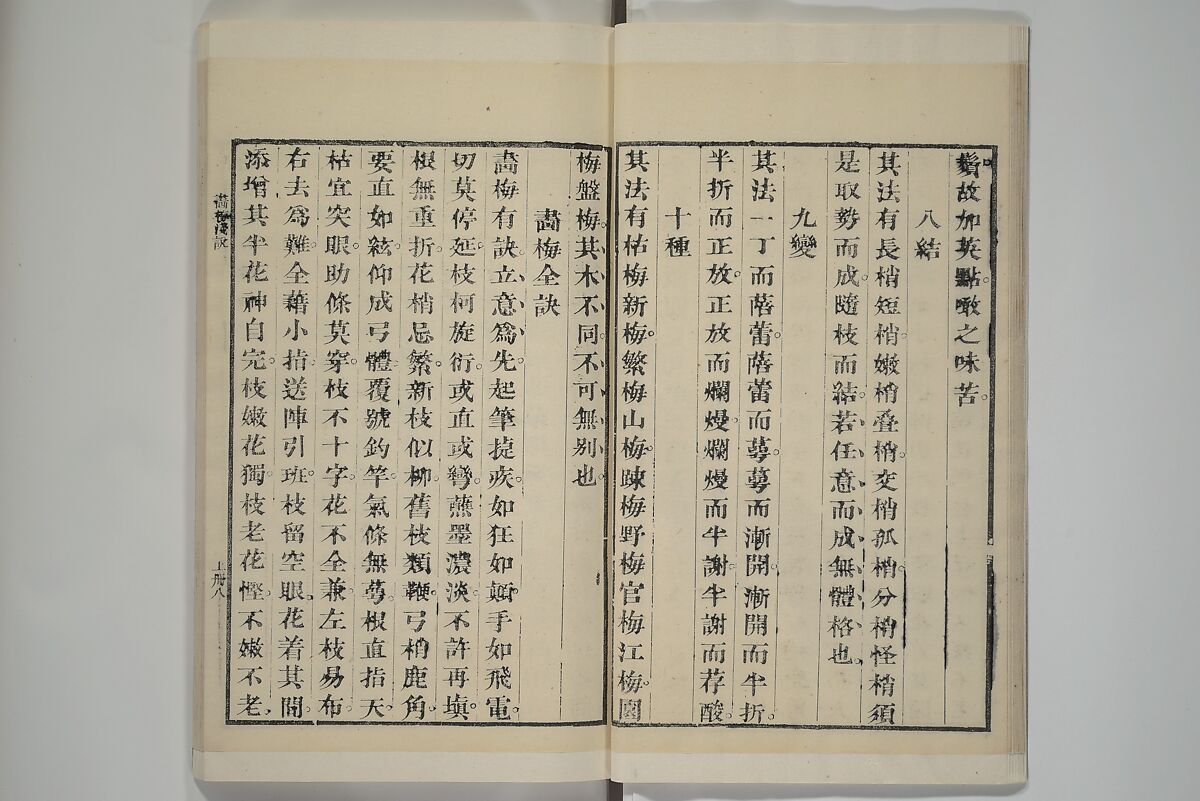 鬚故加英點噉之味苦。
八結
其法有長梢短梢。嫩梢叠梢。交梢孤梢。分梢怪梢須
是取勢而成。隨枝而結。若任意而成無體格也。
九變
其法一丁而蓓蕾。蓓蕾而萼。萼而漸開。漸開而半折。
半折而正放。正放而爛熳。爛熳而半謝。半謝而荐酸。
十種
其法有枯梅新梅。繁梅山梅。疎梅野梅官梅江梅。園
梅盤梅。其木不同。不可無別也。
畵梅全訣
畵梅有訣。立意爲先。起筆捷疾。如狂如顛。手如飛電。
切莫停延。枝柯旋衍。或直或彎。蘸墨濃淡。不許再塡。
根無重折。花梢忌繁。新枝似柳。舊枝類鞭。弓梢鹿角。
要直如絃。仰成弓體。覆號釣竿。氣條無萼。根直指天。
枯宜突眼。助條莫穿。枝不十字。花不全兼。左枝易布。
右去爲難。全藉小指。送陣引班。枝留空眼。花着其間。
添增其半。花神自完。枝嫩花獨。枝老花慳。不嫩不老。
畵梅淺說
上册八